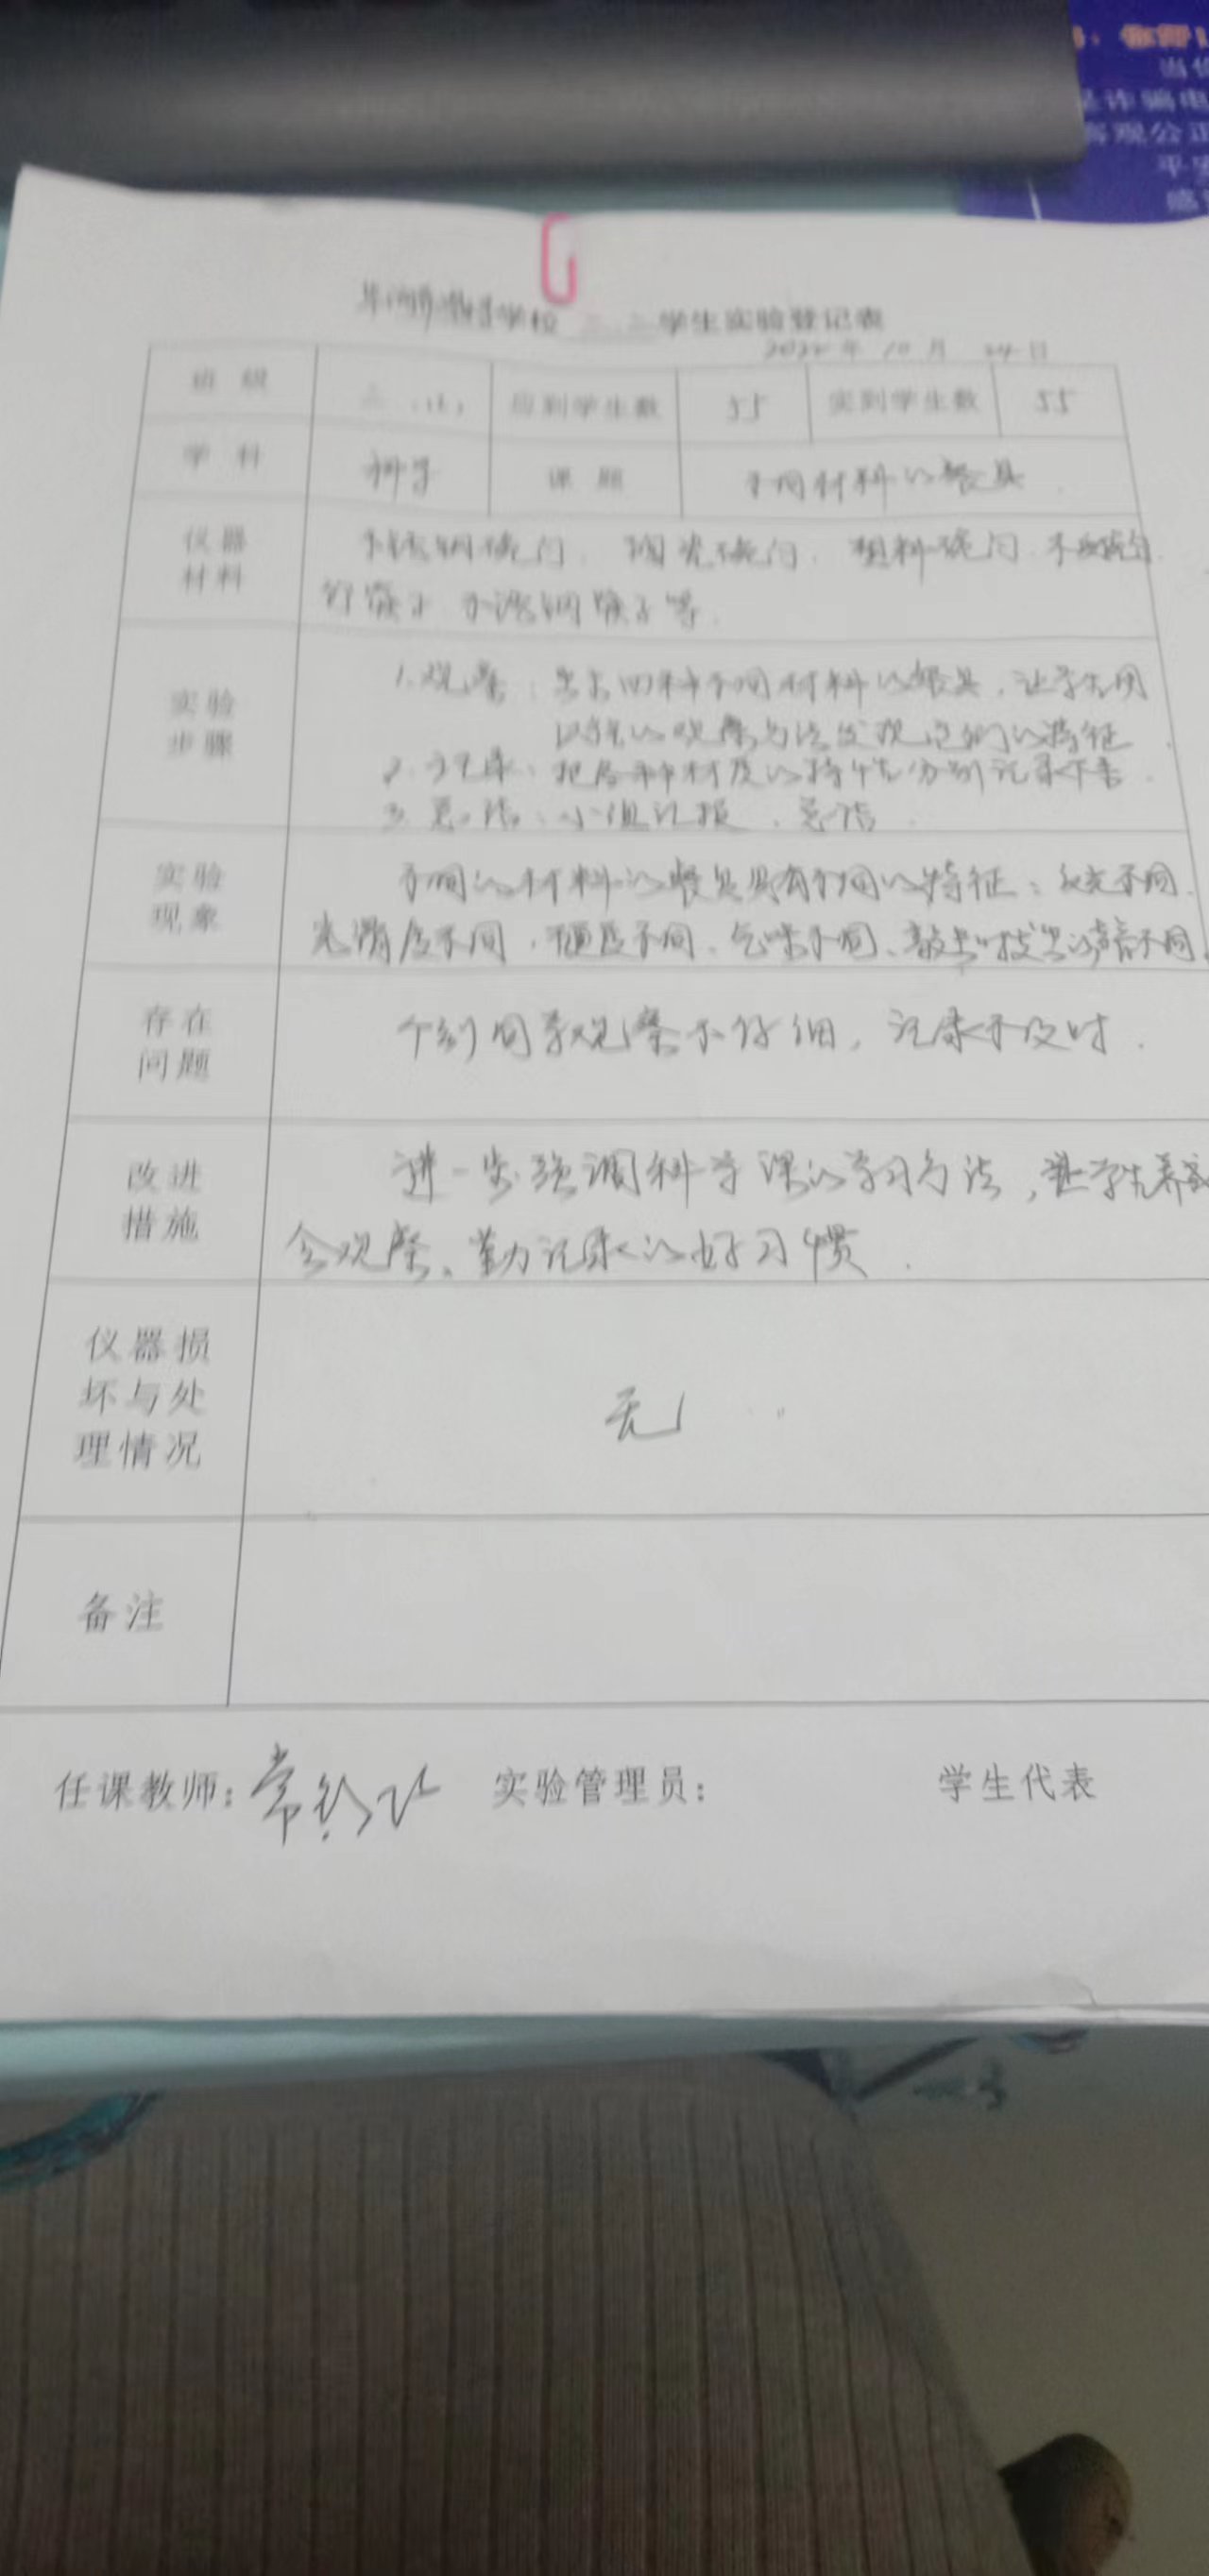 当
是诈骗电
客观公正
平
感
学校 学生实验登记表
2022年 10月 24日
班级 应到学生数 55 实到学生数 55
学科 科学 课题 不同材料的餐具
仪器材料 不锈钢碗 陶瓷碗 塑料碗
筷子 不锈钢 筷子等.
实验步骤 1.观察:出示四种不同材料的餐具,让学生用
以往的观察方法发现它们的特征.
2. 记录:把各种材质的特性分别记录下来.
3.总结:小组汇报、总结.
实验现象 不同的材料的餐具具有不同的特征:不同、
光滑度不同、硬度不同、气味不同、敲击时发出的声音不同.
存在问题 个别同学观察不仔细,记录不及时.
改进措施 进一步强调科学课的学习方法,让学生养成
会观察、勤记录的好习惯.
仪器损坏与处理情况 无
备注
任课教师: 常 实验管理员: 学生代表